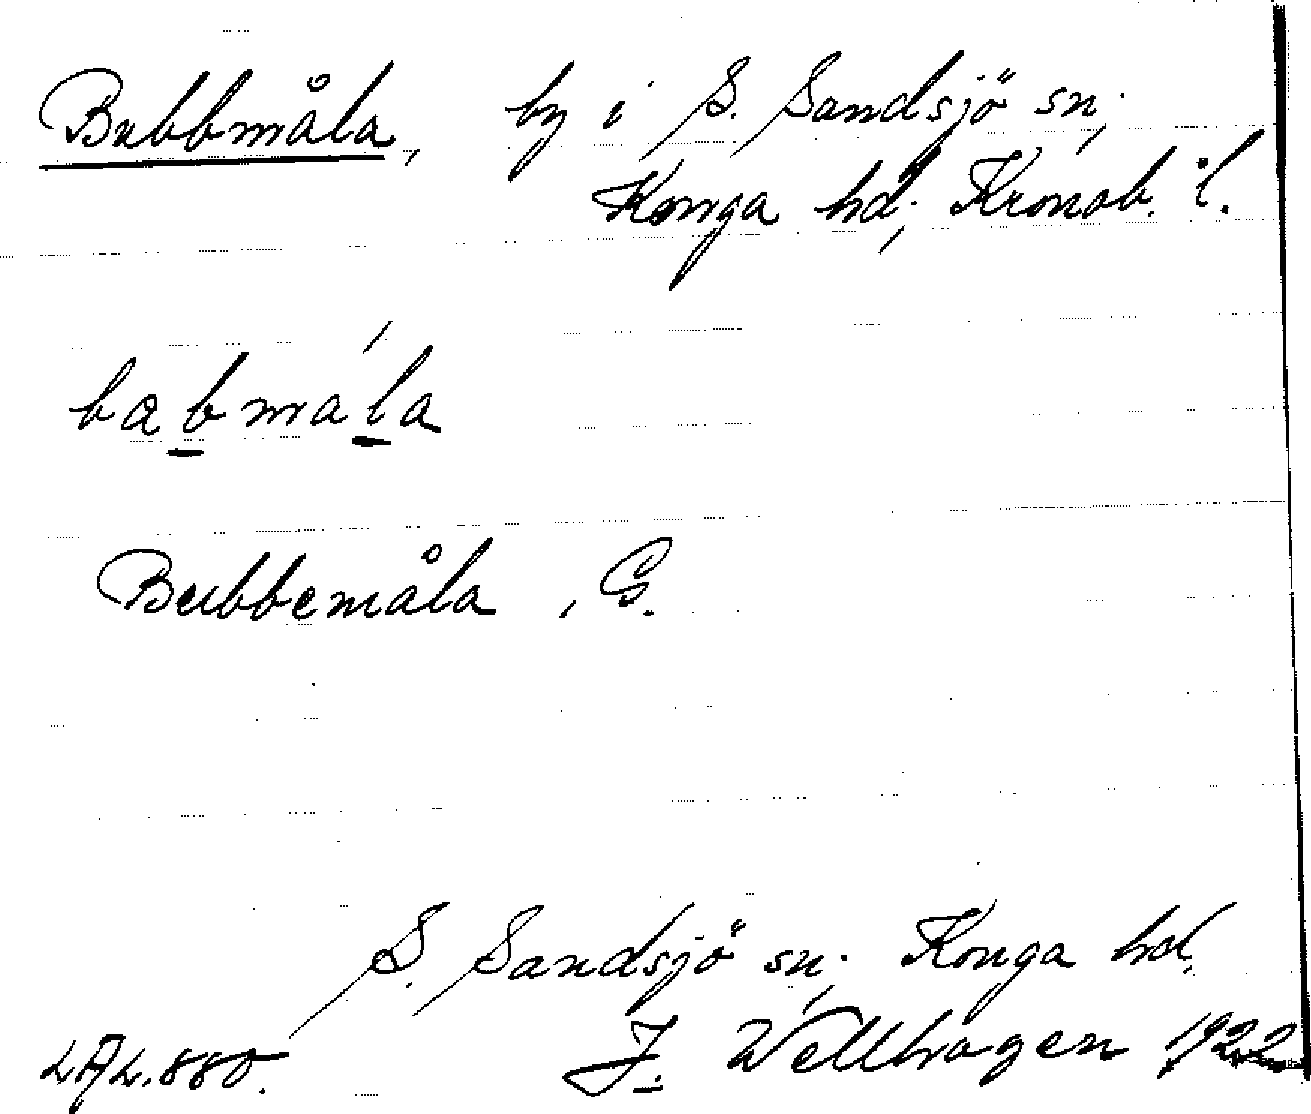 Bubbmåla, by i S. Sandsjö sn;
Konga hd; Kronob. l.
babmála
Bubbemåla, G.
S. Sandsjö sn; Konga hd.
LAL.880. J. Wellhagen 1922